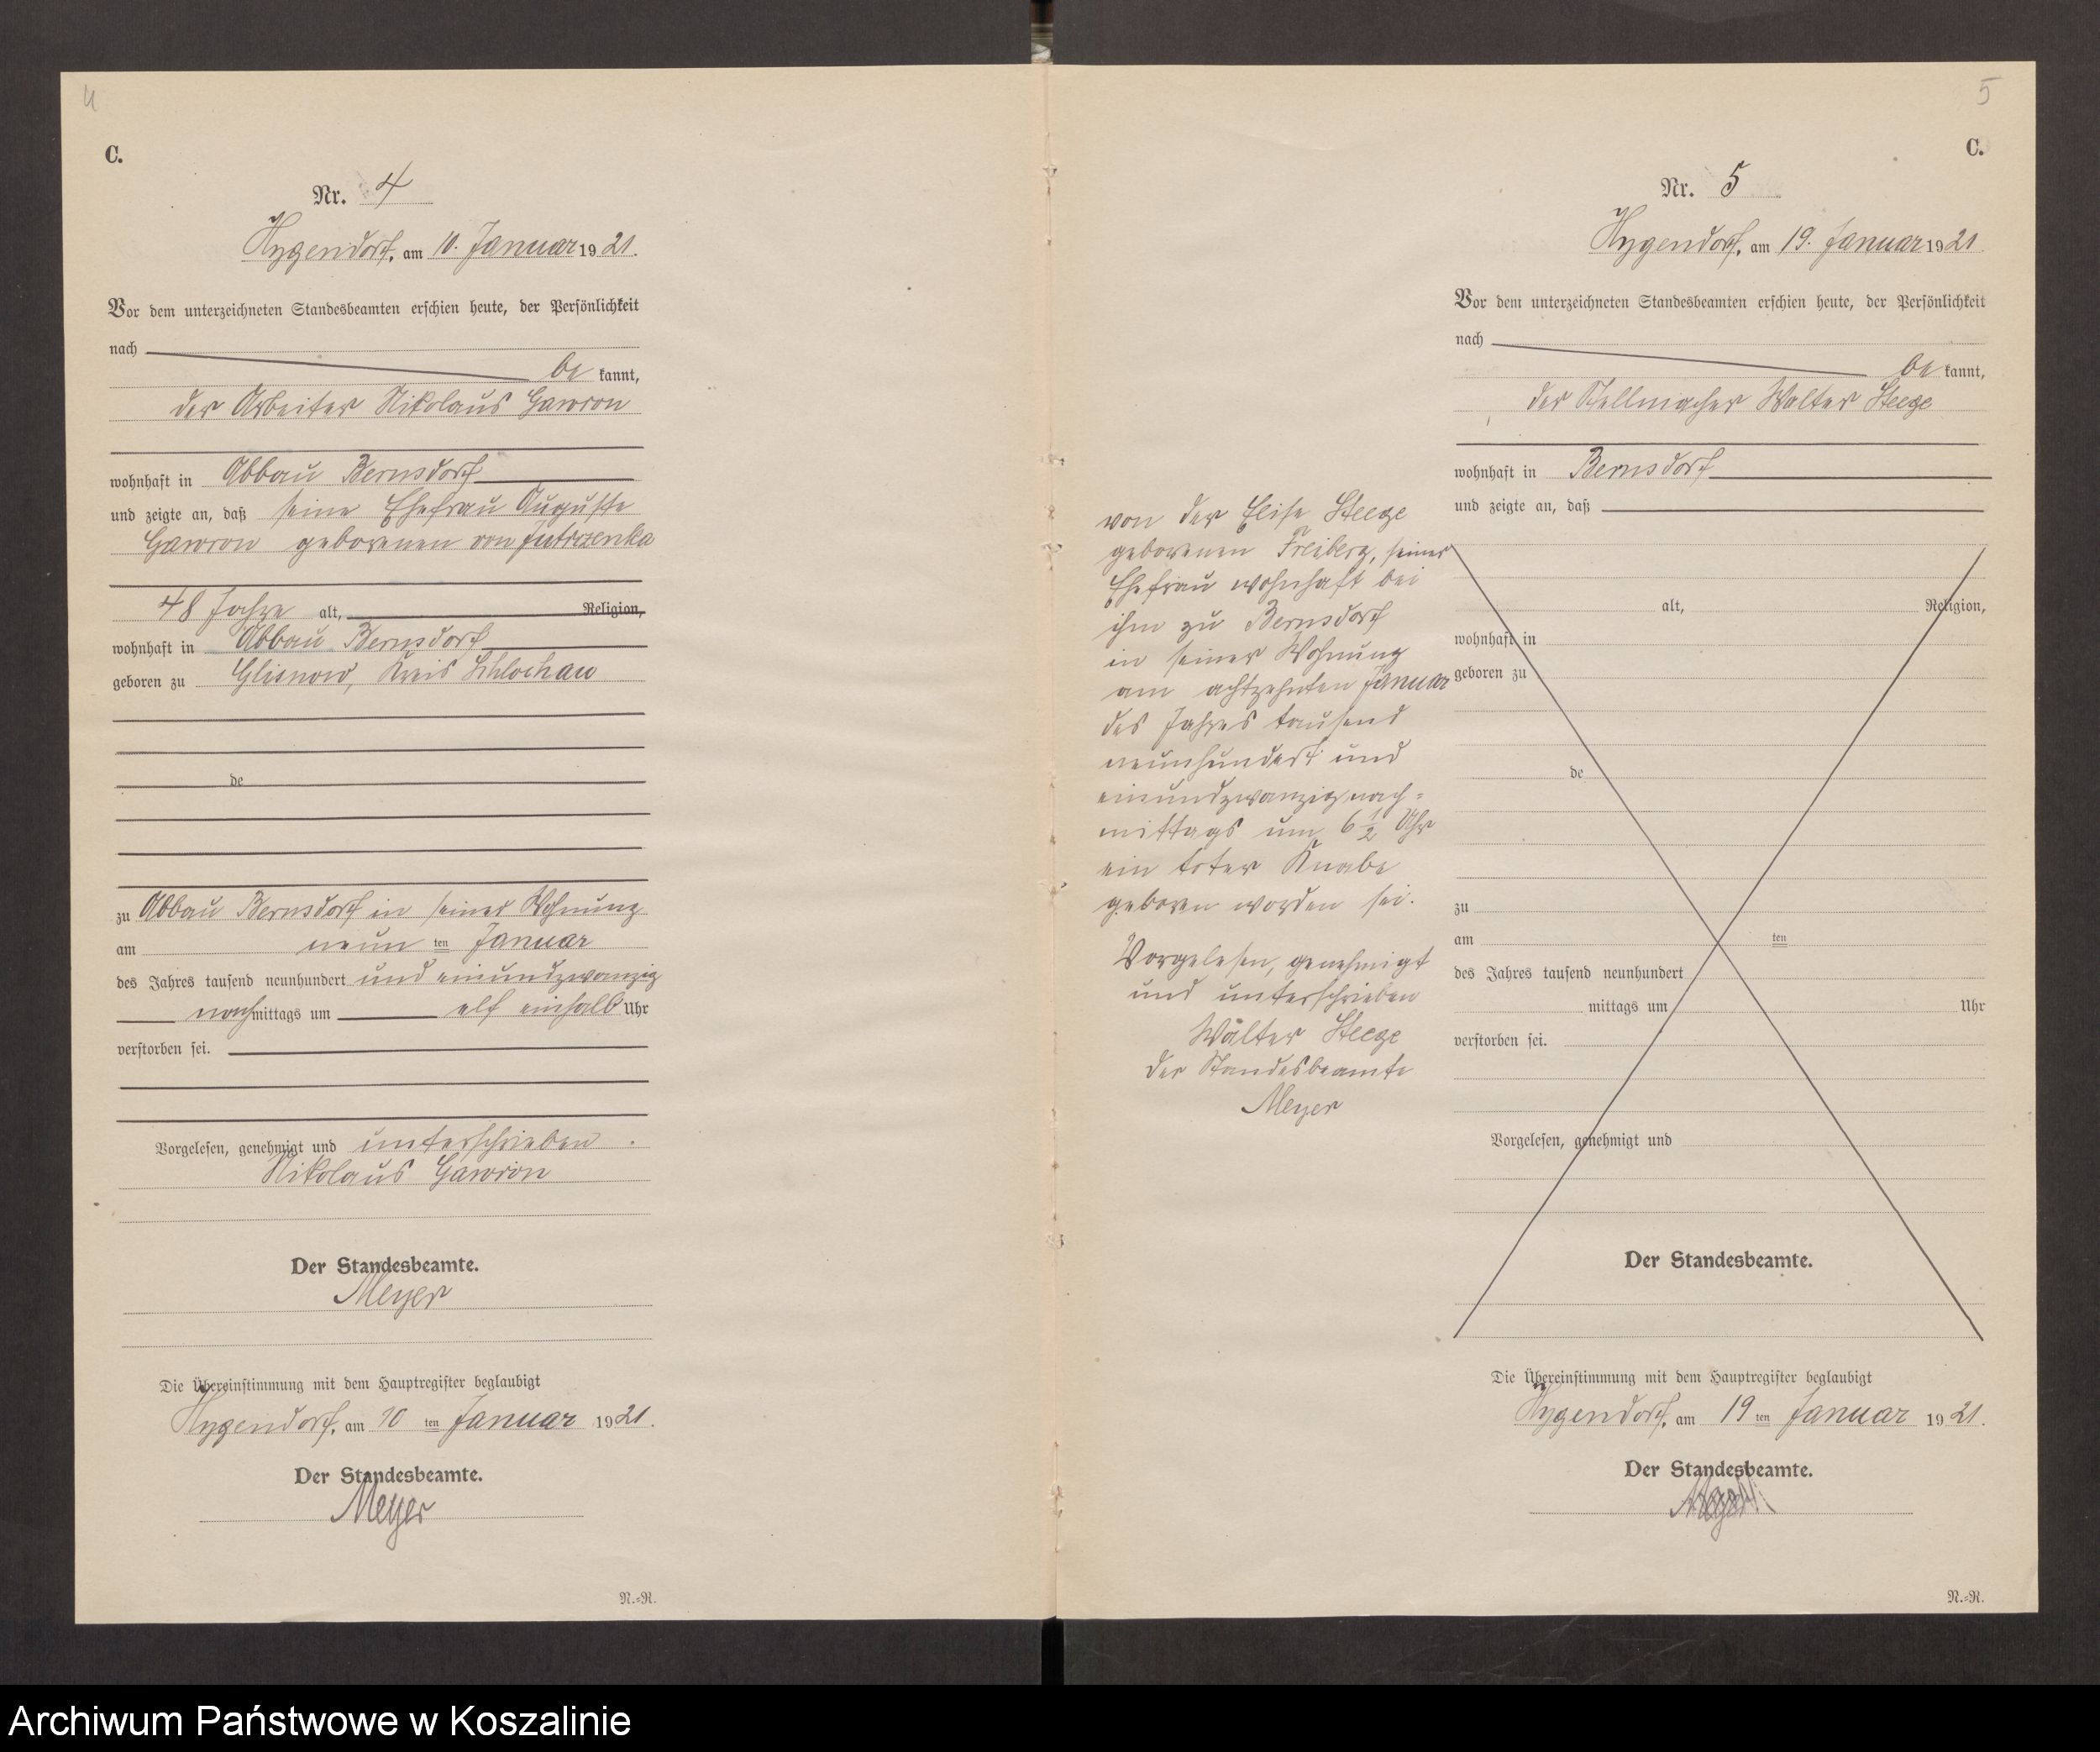 4
C.
Nr. 4
Hygendorf, am 10. Januar 1921.
Vor dem unterzeichneten Standesbeamten erschien heute, der Persönlichkeit
nach
be kannt,
der Arbeiter Nikolaus Gawron
wohnhaft in Abbau Bernsdorf
und zeigte an, daß seine Ehefrau Auguste
Gawron geborenen von Jutrzenka
48 Jahre alt, Religion,
wohnhaft in Abbau Bernsdorf
geboren zu Glisnow, Kreis Schlochau
de
zu Abbau Bernsdorf in seiner Wohnung
am neun ten Januar
des Jahres tausend neunhundert und einundzwanzig
nachmittags um elf einhalb Uhr
verstorben sei.
Vorgelesen, genehmigt und unterschrieben.
Nikolaus Gawron
Der Standesbeamte.
Meyer
Die Übereinstimmung mit dem Hauptregister beglaubigt
Hygendorf, am 10 ten Januar 1921.
Der Standesbeamte.
Meyer
N.=R.
5
C.
Nr. 5
Hygendorf, am 19. Januar 1921
Vor dem unterzeichneten Standesbeamten erschien heute, der Persönlichkeit
nach
be kannt,
der Stellmacher Walter Steege
wohnhaft in Bernsdorf
und zeigte an, daß
von der Elise Steege
geborenen Freiberg, seiner
Ehefrau wohnhaft bei
ihm zu Bernsdorf
in seiner Wohnung
am achtzehnten Januar
des Jahres tausend
neunhundert und
einundzwanzig nach=
mittags um 6 1/2 Uhr
ein toter Knabe
geboren worden sei.
Vorgelesen, genehmigt
und unterschrieben
Walter Steege
der Standesbeamte
Meyer
alt, Religion,
wohnhaft in
geboren zu
de
zu
am ten
des Jahres tausend neunhundert
mittags um Uhr
verstorben sei.
Vorgelesen, genehmigt und
Der Standesbeamte.
Die Übereinstimmung mit dem Hauptregister beglaubigt
Hygendorf, am 19 ten Januar 1921.
Der Standesbeamte.
N.=R.
Archiwum Państwowe w Koszalinie